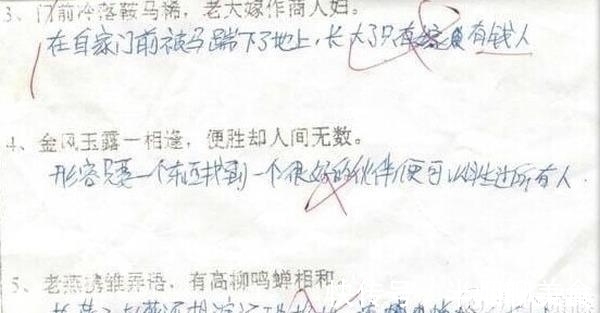 3、门前冷落鞍马稀，老大嫁作商人妇。
在自家门前被马踹下了地上，长大了只有嫁有钱人
4、金风玉露一相逢，便胜却人间无数。
形容只要一个东西找到一个很好的伙伴，便可以胜过所有人.
5、老燕携雏弄语，有高柳鸣蝉相和。